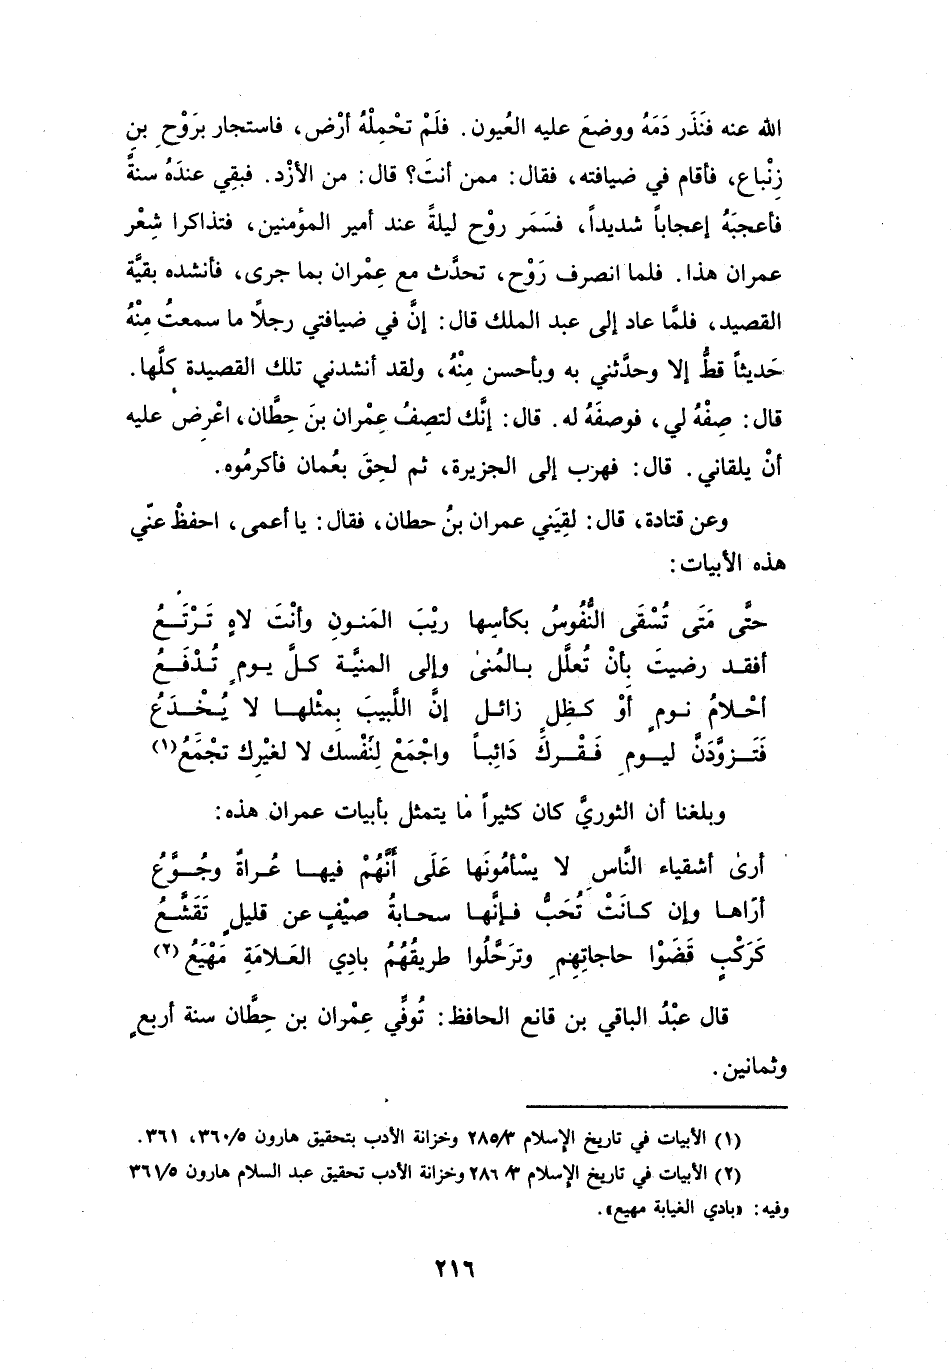 الله عنه فنَذَر دَمَهُ ووضعَ عليه العُيون. فلَمْ تحْمِلْهُ أرْض، فاستجار برَوْحِ بنِ
زِنْباع، فأقام في ضيافته، فقال: ممن أنتَ؟ قال: من الأزْد. فبقِي عندَهُ سنةً
فأعجبَهُ إعجاباً شديداً، فسَمَر روْح ليلةً عند أمير المؤمنين، فتذاكرا شِعْر
عمران هذا. فلما انصرف رَوْح، تحدَّث مع عِمْران بما جرى، فأنشده بقيَّة
القصيد، فلمَّا عاد إلى عبد الملك قال: إنَّ في ضيافتي رجلاً ما سمعتُ مِنْهُ
حَديثاً قطُّ إلا وحدَّثني به وبأحسن مِنْهُ، ولقد أنشدني تلك القصيدة كلَّها.
قال: صِفْهُ لي، فوصفَهُ له. قال: إنَّك لتصِفُ عِمْران بنَ حِطَّان، اعْرِض عليه
أنْ يلقاني. قال: فهرب إلى الجزيرة، ثم لحِقَ بعُمان فأكرمُوه.
وعن قتادة، قال: لقِيَني عمران بنُ حطان، فقال: يا أعمى، احفظْ عنّي
هذه الأبيات:
حتَّى مَتَى تُسْقَى النُّفُوسُ بكأسِها ريْبَ المَنونِ وأنْتَ لاهٍ تَرْتَعُ
أفقد رضيتَ بأنْ تُعلَّل بالمُنىٰ وإلى المنيَّة كلَّ يومٍ تُدْفَعُ
أحْلامُ نومٍ أوْ كظِلٍ زائل إنَّ اللَّبيبَ بمثْلها لا يُخْدَعُ
فَتَزوَّدَنَّ ليومِ فَقْرِكَ دَائِباً واجْمَعْ لِنَفْسك لا لغيْرِك تجْمَعُ(١)
وبلغنا أن الثوريَّ كان كثيراً ما يتمثل بأبيات عمران هذه:
أرىٰ أشقياء النَّاسِ لا يسْأمُونَها عَلَى أنَّهُمْ فيها عُراةٌ وجُوَّعُ
أرَاها وإن كانَتْ تُحَبُّ فإنَّها سحابةُ صيْفٍ عن قليلٍ تَقَشَّعُ
كَرَكْبٍ قضَوْا حاجاتِهِم وترَحَّلُوا طريقُهُمُ بادِي العَلامَةِ مَهْيَعُ(٢)
قال عبْدُ الباقي بن قانع الحافظ: تُوفِّي عِمْران بن حِطَّان سنة أربعٍ
وثمانين.
(١) الأبيات في تاريخ الإسلام ٢٨٥/٣ وخزانة الأدب بتحقيق هارون ٣٦٠/٥، ٣٦١.
(٢) الأبيات في تاريخ الإسلام ٢٨٦/٣ وخزانة الأدب تحقيق عبد السلام هارون ٣٦١/٥
وفيه: «بادي الغيابة مهيع».
٢١٦